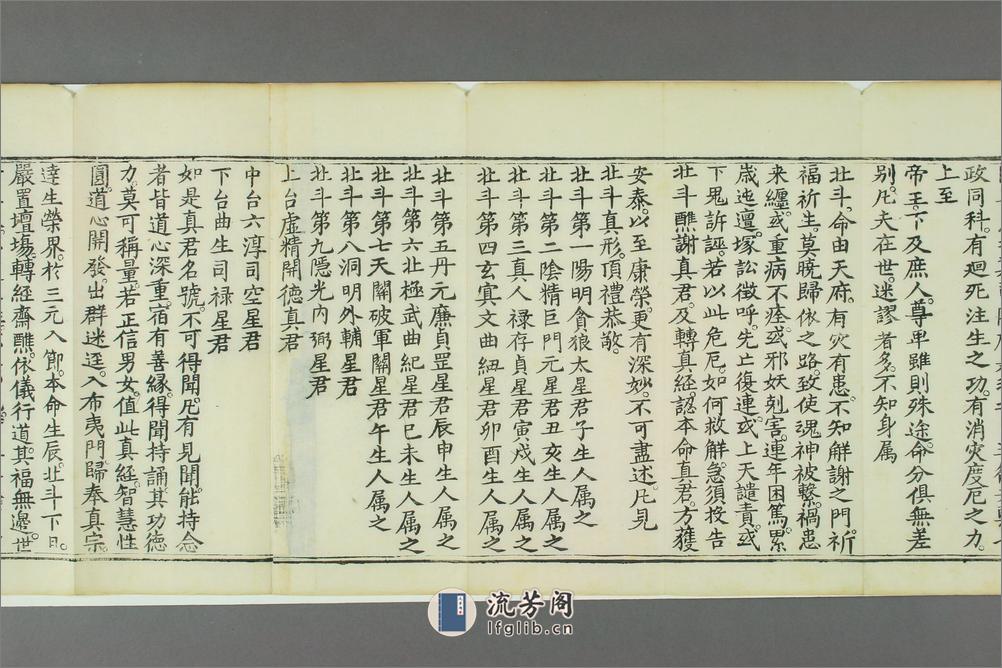 政同科。有廻死注生之功。有消灾度厄之力。
上至
帝王。下及庶人。尊卑雖則殊途。命分俱無差
别。凡夫在世。迷謬者多。不知身属
北斗。命由天府。有灾有患。不知解謝之門。祈
福祈生。莫曉歸依之路。致使魂神被繫。禍患
来纏。或重病不痊。或邪妖尅害。連年困篤。累
歳迍邅。塚訟徵呼。先亡復連。或上天譴責。或
下鬼訴誣。若以此危厄。如何救解。急須投告
北斗。醮謝真君。及轉真經。認本命真君。方獲
安泰。以至康榮。更有深妙。不可盡述。凡見
北斗真形。頂禮恭敬。
北斗第一陽明貪狼太星君子生人属之
北斗第二陰精巨門元星君丑亥生人属之
北斗第三真人禄存貞星君寅戌生人属之
北斗第四玄冥文曲紐星君卯酉生人属之
北斗第五丹元廉貞罡星君辰申生人属之
北斗第六北極武曲紀星君巳未生人属之
北斗第七天關破軍關星君午生人属之
北斗第八洞明外輔星君
北斗第九隐光内弼星君
上台虚精開德真君
中台六淳司空星君
下台曲生司禄星君
如是真君名號。不可得聞。凡有見聞。能持念
者。皆道心深重。宿有善緣。得聞持誦。其功德
力。莫可稱量。若正信男女。值此真經。智慧性
圓。道心開發。出群迷逕。入布夷門。歸奉真宗。
達生榮界。於三元八節。本命生辰。北斗下日。
嚴置壇場。轉經齋醮。依儀行道。其福無邊。世
流芳阁
lfglib.cn